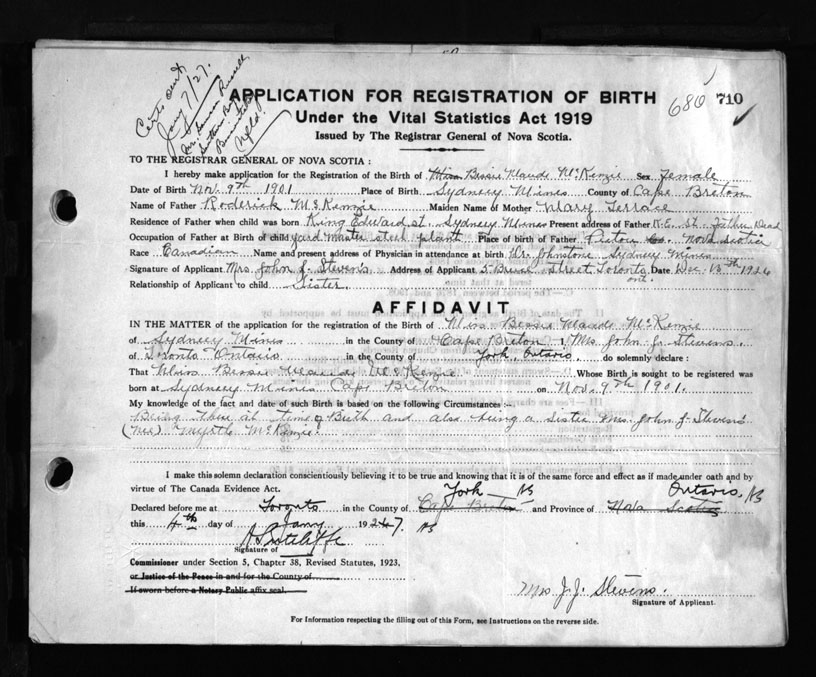 Certs sent
Jany 7/27.
Mr. Russell
Nfld.
686 710
APPLICATION FOR REGISTRATION OF BIRTH
Under the Vital Statistics Act 1919
Issued by The Registrar General of Nova Scotia.
TO THE REGISTRAR GENERAL OF NOVA SCOTIA :
I hereby make application for the Registration of the Birth of Miss Bessie Maude McKenzie Sex female
Date of Birth Nov. 9th 1901 Place of Birth Sydney Mines County of Cape Breton
Name of Father Roderick McKenzie Maiden Name of Mother Mary Terrace
Residence of Father when child was born King Edward st. Sydney Mines Present address of Father St. Father Dead
Occupation of Father at Birth of child yard master steel plant Place of birth of Father Pictou Co. Nova Scotia
Race Canadian Name and present address of Physician in attendance at birth Dr. Johnstone Sydney Mines
Signature of Applicant Mrs. John J. Stevens Address of Applicant 5 Street Toronto Ont. Date Dec. 13th 1926
Relationship of Applicant to child Sister
AFFIDAVIT
IN THE MATTER of the application for the registration of the Birth of Miss Bessie Maude McKenzie
of Sydney Mines in the County of Cape Breton I Mrs John J. Stevens
of Toronto Ontario in the County of York, Ontario. do solemnly declare :
That Miss Bessie Maude McKenzie Whose Birth is sought to be registered was
born at Sydney Mines Cape Breton on Nov. 9th 1901.
My knowledge of the fact and date of such Birth is based on the following Circumstances :—
Being there at time of Birth and also being a Sister Mrs. John J. Stevens
(nee) Myrtle McKenzie.
I make this solemn declaration conscientiously believing it to be true and knowing that it is of the same force and effect as if made under oath and by
virtue of The Canada Evidence Act. York AS Ontario, AS
Declared before me at Toronto in the County of Cape Breton and Province of Nova Scotia
this 4th day of Jany 1927. AS
A Sutcliffe
Signature of
Commissioner under Section 5, Chapter 38, Revised Statutes, 1923,
or Justice of the Peace in and for the County of
If sworn before a Notary Public affix seal.
Mrs J. J. Stevens.
Signature of Applicant.
For Information respecting the filling out of this Form, see Instructions on the reverse side.